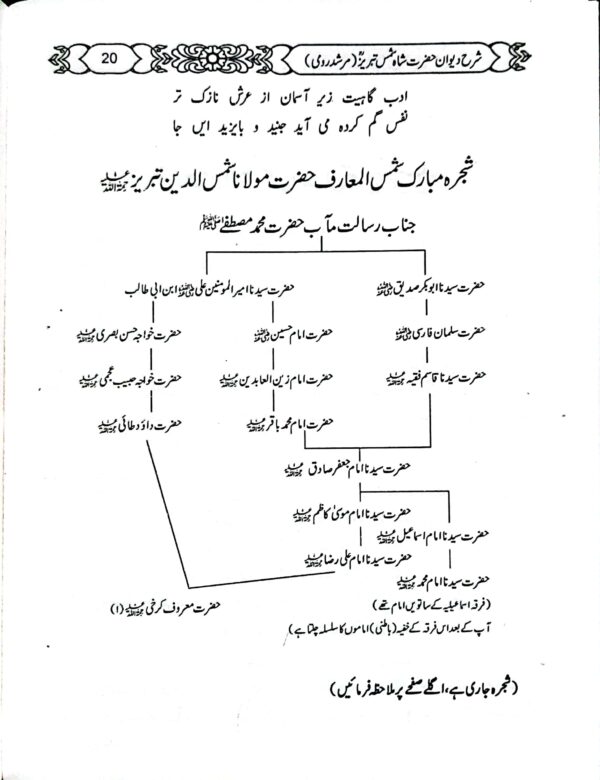 20
شرح دیوان حضرت شاہ شمس تبریزؒ (مرشد رومی)
ادب گاہیت زیر آسمان از عرش نازک تر
نفس گم کردہ می آید جنید و بایزید ایں جا
شجرہ مبارک شمس المعارف حضرت مولانا شمس الدین تبریز رحمۃ اللہ علیہ
جناب رسالت مآب حضرت محمد مصطفےٰ ﷺ
حضرت سیدنا ابوبکر صدیق رضی اللہ عنہ
حضرت سیدنا امیر المومنین علی رضی اللہ عنہ ابن ابی طالب
حضرت سلمان فارسی رضی اللہ عنہ
حضرت امام حسین رضی اللہ عنہ
حضرت خواجہ حسن بصری رحمۃ اللہ علیہ
حضرت سیدنا قاسم فقیہ رحمۃ اللہ علیہ
حضرت امام زین العابدین رحمۃ اللہ علیہ
حضرت خواجہ حبیب عجمی رحمۃ اللہ علیہ
حضرت امام محمد باقر رحمۃ اللہ علیہ
حضرت داؤد طائی رحمۃ اللہ علیہ
حضرت سیدنا امام جعفر صادق رحمۃ اللہ علیہ
حضرت سیدنا امام موسیٰ کاظم رحمۃ اللہ علیہ
حضرت سیدنا امام اسماعیل رحمۃ اللہ علیہ
حضرت سیدنا امام علی رضا رحمۃ اللہ علیہ
حضرت سیدنا امام محمد رحمۃ اللہ علیہ
(فرقہ اسماعیلیہ کے ساتویں امام تھے)
حضرت معروف کرخی رحمۃ اللہ علیہ (۱)
آپ کے بعد اس فرقہ کے خفیہ (باطنی) اماموں کا سلسلہ چلتا ہے)
(شجرہ جاری ہے، اگلے صفحے پر ملاحظہ فرمائیں)